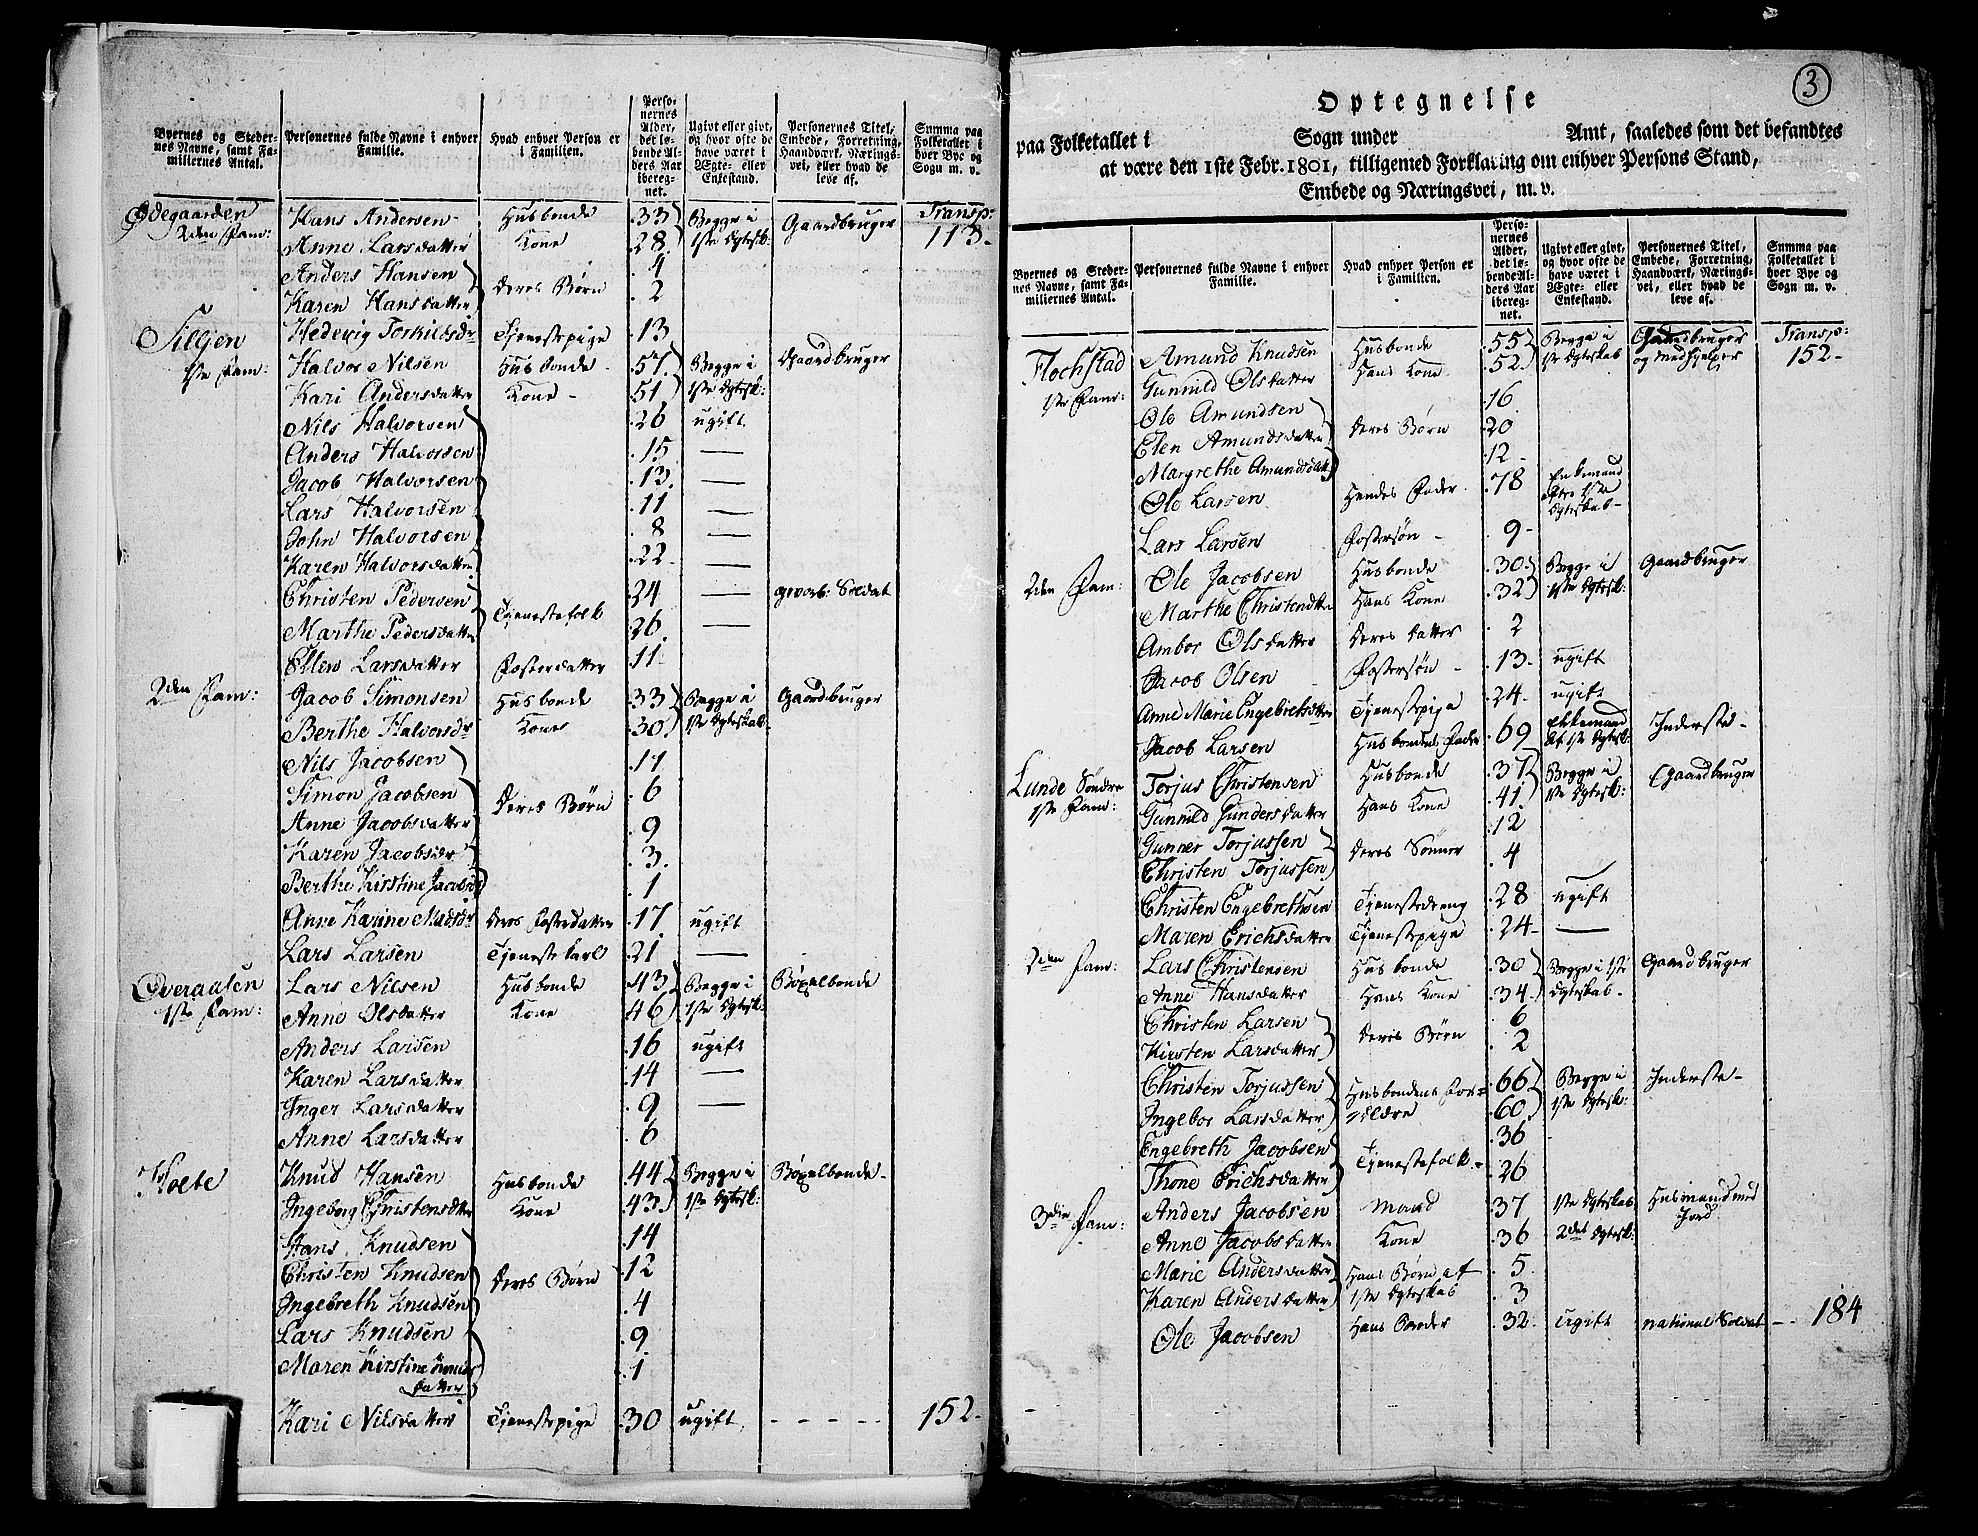 Byernes og Steder-
nes Navne, samt Fa-
miliernes Antal.
Personernes fulde Navne i enhver
Familie.
Hvad enhver Person er
i Familien.
Perso-
nernes
Alder,
det lø-
bende Al-
ders Aar
ibereg-
net.
Ugivt eller givt,
og hvor ofte de
have været i
Ægte- eller
Enkestand.
Personernes Titel,
Embede, Forretning,
Haandværk, Nærings-
vei, eller hvad de
leve af.
Summa paa
Folketallet i
hver Bye og
Sogn m. v.
Ødegaarden Hans Andersen Husbonde .33 Begge i Gaardbruger Transp:
2den Fam: Anne Larsdatter Kone .28. 1ste Egtesk: 113.
Anders Hansen .4
Karen Hansdatter Deres Børn .2
Siljen Hedevig Torkildsdr Tjenestepige .13
1ste Fam: Halvor Nilsen Husbonde .57. Begge i Gaardbruger
Kari Andersdatter Kone .51 1ste Egtesk:
Nils Halvorsen .26 ugift
Anders Halvorsen .15 —
Jacob Halvorsen .13. —
Lars Halvorsen .11 —
John Halvorsen .8 —
Karen Halvorsdatter .22 —
Christen Pedersen .24 — gevorb: Soldat
Marthe Pedersdatter Tjenestefolk .26 —
Ellen Larsdatter Fosterdatter .11
2den Fam: Jacob Simonsen Husbonde .33 Begge i Gaardbruger
Berthe Halvorsdr Kone .30 1ste Egteskab:
Nils Jacobsen .11
Simon Jacobsen .6
Anne Jacobsdatter Deres Børn .9
Karen Jacobsdr .3.
Berthe Kirstine Jacobsdr .1
Anne Karine Madsdr Deres Fosterdatter .17 ugift
Lars Larsen Tjenestekarl .21 —
Overaasen Lars Nilsen Husbonde .43 Begge i Bøxelbonde
1ste Fam: Anne Olsdatter Kone .46 1ste Egtesk:
Anders Larsen .16 ugift
Karen Larsdatter .14 —
Inger Larsdatter .9 —
Anne Larsdatter .6
Holte Knud Hansen Husbonde .44 Begge i Bøxelbonde
Ingeborg Christensdatter Kone .43. 1ste Egtesk:
Hans Knudsen .14
Christen Knudsen Deres Børn .12
Ingebreth Knudsen .4
Lars Knudsen .9
Maren Kirstine Knuds .1
datter
Kari Nilsdatter Tjenestepige .30 ugift 152.
3
Optegnelse
paa Folketallet i Sogn under Amt, saaledes som det befandtes
at være den 1ste Febr. 1801, tilligemed Forklaring om enhver Persons Stand,
Embede og Næringsvei, m. v.
Byernes og Steder-
nes Navne, samt Fa-
miliernes Antal.
Personernes fulde Navne i enhver
Familie.
Hvad enhver Person er
i Familien.
Perso-
nernes
Alder,
det lø-
bende Al-
ders Aar
ibereg-
net.
Ugivt eller givt,
og hvor ofte de
have været i
Ægte- eller
Enkestand.
Personernes Titel,
Embede, Forretning,
Haandværk, Nærings-
vei, eller hvad de
leve af.
Summa paa
Folketallet i
hver Bye og
Sogn m. v.
Flochstad Amund Knudsen Husbonde .55 Begge i Gaardbruger Transp:
1ste Fam: Gunnild Olsdatter Hans Kone .52. 1ste Egteskab og Medhjelper 152.
Ole Amundsen .16
Elen Amundsdatter Deres Børn .20
Margrethe Amundsdatter .12
Ole Larsen Hendes Fader .78 Enkemand
efter 1ste
Egteskab
Lars Larsen Fostersøn .9
2den Fam: Ole Jacobsen Husbonde .30 Begge i Gaardbruger
Marthe Christendtter Hans Kone .32 1ste Egtesk:
Ambor Olsdatter Deres Datter .2
Jacob Olsen Fostersøn .13 ugift
Anne Marie Engebrethsdatter Tjenestepige .24 ugift
Jacob Larsen Husbondens Fader .69 Enkemand Inderste
af 1ste Egtesk:
Lunde Søndre Torjus Christensen Husbonde .37 Begge i Gaardbruger
1ste Fam: Gunnild Gundersdatter Hans Kone .41. 1ste Egtesk:
Gunner Torjussen .12
Christen Torjussen Deres Sønner .4
Christen Engebrethsen Tjenestedreng .28 ugift
Maren Erichsdatter Tjenestepige .24 —
2den Fam: Lars Christensen Husbonde .30 Begge i 1ste Gaardbruger
Anne Hansdatter Hans Kone .34. Egteskab
Christen Larsen .6
Kirsten Larsdatter Deres Børn .2
Christen Torjussen Husbondens For- .66 Begge i Inderste
Ingebor Larsdatter ældre .60 1ste Egtesk:
Engebreth Jacobsen .36
Thone Erichsdatter Tjenestefolk .26
3die Fam: Anders Jacobsen Mand .37 1ste Egteskab Husmand med
Anne Jacobsdatter Kone .36 2det Egtesk: Jord
Marie Andersdatter Hans Børn af .5
Karen Andersdatter 1ste Egteskab .3
Ole Jacobsen Hans Broder .32. Ugift national Soldat 184